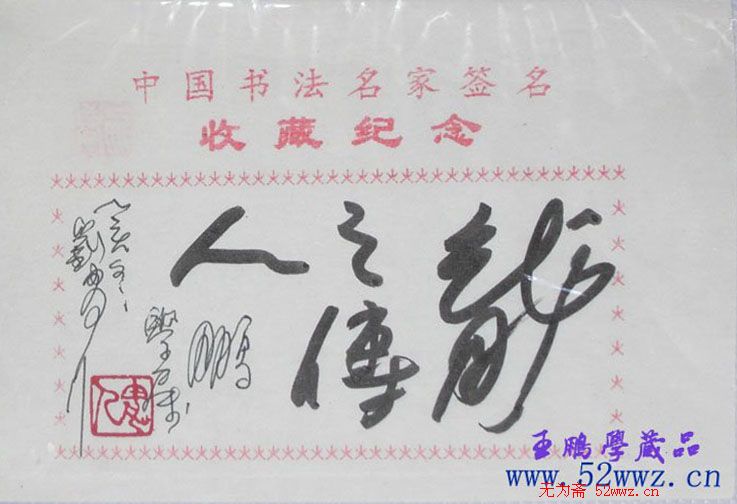 中国书法名家签名
收藏纪念
龍
之傳
人
鵬
學
王鵬學藏品
www.52wwz.cn
无为斋 52wwz.cn